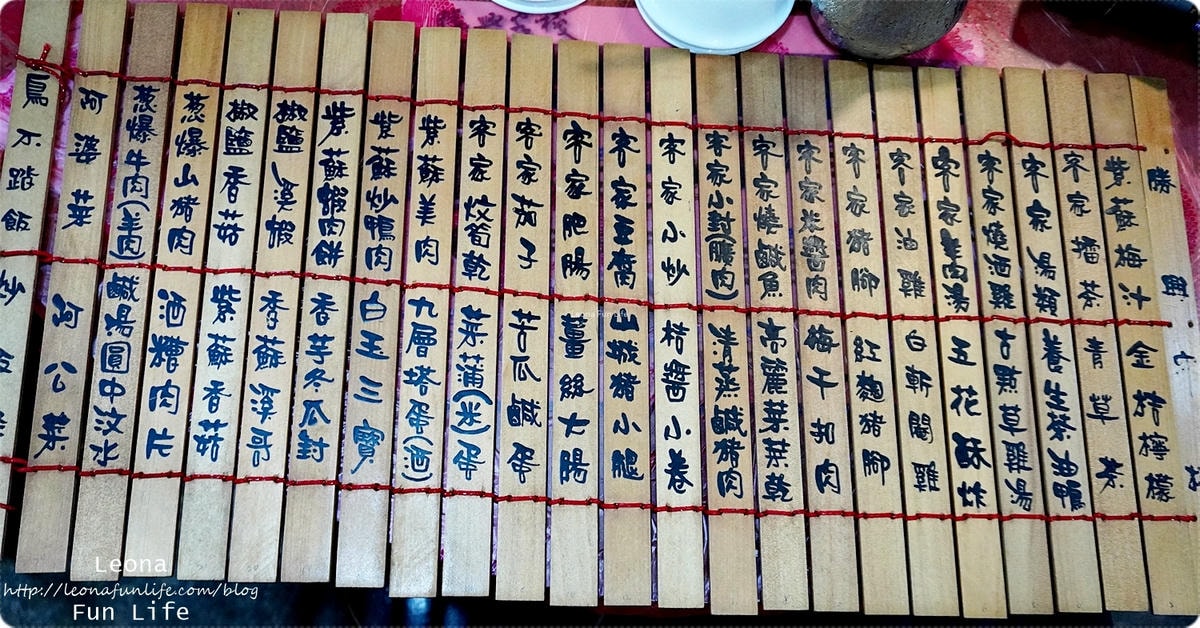 勝興
紫蘇梅汁 金桔檸檬
客家擂茶 青草茶
客家湯類 養生茶油鴨
客家燒酒雞 古早草雞湯
客家羊肉湯 五花酥炸
客家油雞 白斬閹雞
客家豬腳 紅麴豬腳
客家米醬肉 梅干扣肉
客家燒鹹魚 高麗菜菜乾
客家小封(腸肉) 清蒸鹹豬肉
客家小炒 桔醬小卷
客家豆腐 山城豬小腿
客家肥腸 薑絲大腸
客家茄子 苦瓜鹹蛋
客家炆筍乾 菜蒲(米)蛋
紫蘇羊肉 九層塔蛋(酒)
紫蘇炒鴨肉 白玉三寶
紫蘇蝦肉餅 香芋冬瓜封
椒鹽溪蝦 香蘇溪哥
椒鹽香菇 紫蘇香菇
葱爆山豬肉 酒糟肉片
葱爆牛肉(羊肉) 鹹湯圓中汶水
阿婆菜 阿公菜
鳥不踏飯 炒
Leona
http://leonafunlife.com/blog
Fun Life